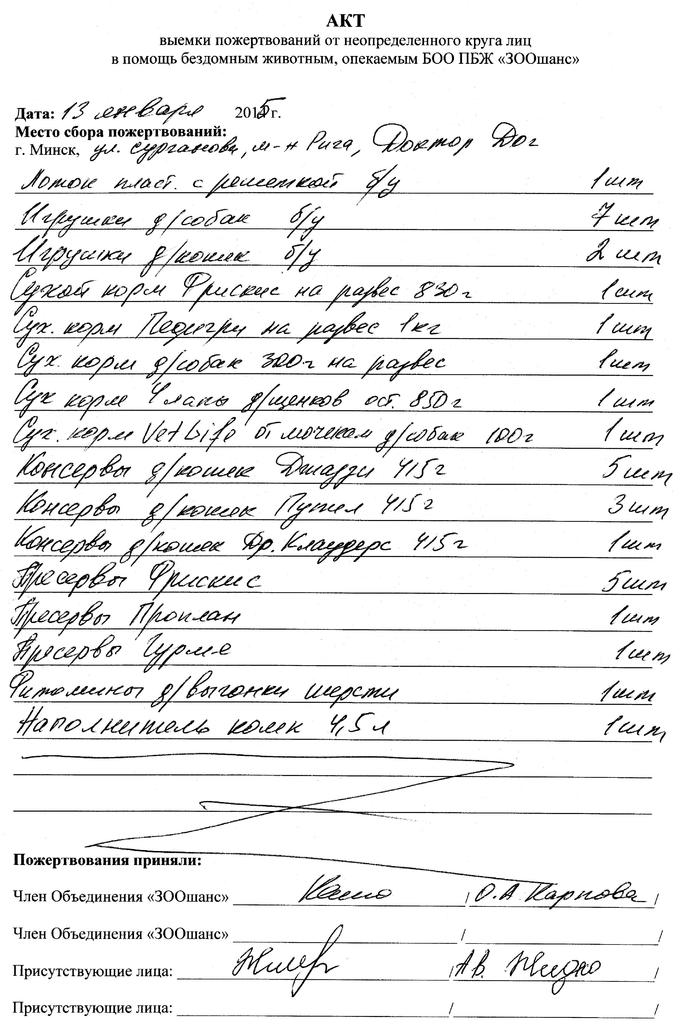 АКТ
выемки пожертвований от неопределенного круга лиц
в помощь бездомным животным, опекаемым БОО ПБЖ «ЗООшанс»
Дата: 13 января 2015 г.
Место сбора пожертвований:
г. Минск, ул. Сурганова, м-н Рига, Доктор Дог
Лоток пласт. с решеткой б/у 1 шт
Игрушки д/собак б/у 7 шт
Игрушки д/кошек б/у 2 шт
Сухой корм Фрискис на развес 830г 1 шт
Сух. корм Педигри на развес 1кг 1 шт
Сух. корм д/собак 300г на развес 1 шт
Сух корм 4 лапы д/щенков ост. 850г 1 шт
Сух. корм VetLife от мочекам д/собак 100г 1 шт
Консервы д/кошек Джазди 415г 5 шт
Консервы д/кошек 415г 3 шт
Консервы д/кошек Др. Клаудерс 415г 1 шт
Пресервы Фрискис 5 шт
Пресервы Проплан 1 шт
Пресервы Гурме 1 шт
Фитомины д/выгонки шерсти 1 шт
Наполнитель комк 4,5л 1 шт
Пожертвования приняли:
Член Объединения «ЗООшанс» / О.А. Карпова /
Член Объединения «ЗООшанс» / /
Присутствующие лица: / /
Присутствующие лица: / /